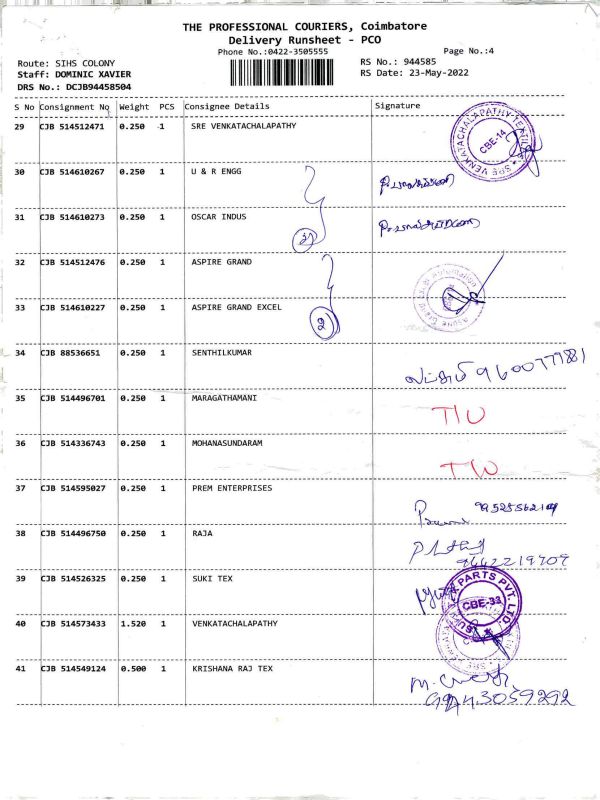 THE PROFESSIONAL COURIERS, Coimbatore
Delivery Runsheet - PCO
Phone No.:0422-3505555 Page No.:4
Route: SIHS COLONY RS No.: 944585
Staff: DOMINIC XAVIER RS Date: 23-May-2022
DRS No.: DCJB94458504
S No Consignment No Weight PCS Consignee Details Signature
29 CJB 514512471 0.250 1 SRE VENKATACHALAPATHY
SRE VENKATACHALAPATHY TEXTILE CBE-14
30 CJB 514610267 0.250 1 U & R ENGG
31 CJB 514610273 0.250 1 OSCAR INDUS
2
32 CJB 514512476 0.250 1 ASPIRE GRAND
33 CJB 514610227 0.250 1 ASPIRE GRAND EXCEL
2
34 CJB 88536651 0.250 1 SENTHILKUMAR
35 CJB 514496701 0.250 1 MARAGATHAMANI
36 CJB 514336743 0.250 1 MOHANASUNDARAM
37 CJB 514595027 0.250 1 PREM ENTERPRISES
38 CJB 514496750 0.250 1 RAJA
9662219709
39 CJB 514526325 0.250 1 SUKI TEX
PARTS PVT. LTD. CBE-33
40 CJB 514573433 1.520 1 VENKATACHALAPATHY
41 CJB 514549124 0.500 1 KRISHANA RAJ TEX
9443059292